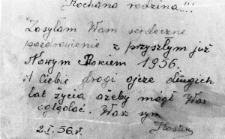 "Kochana rodzino"!!!
Zasyłam Wam serdeczne
pozdrowienie z przyszłym już
Nowym Rokiem 1956.
A Ciebie drogi ojcze długich
lat życia ażeby mógł Was
oglądać. Wasz syn
2.I.56.r.